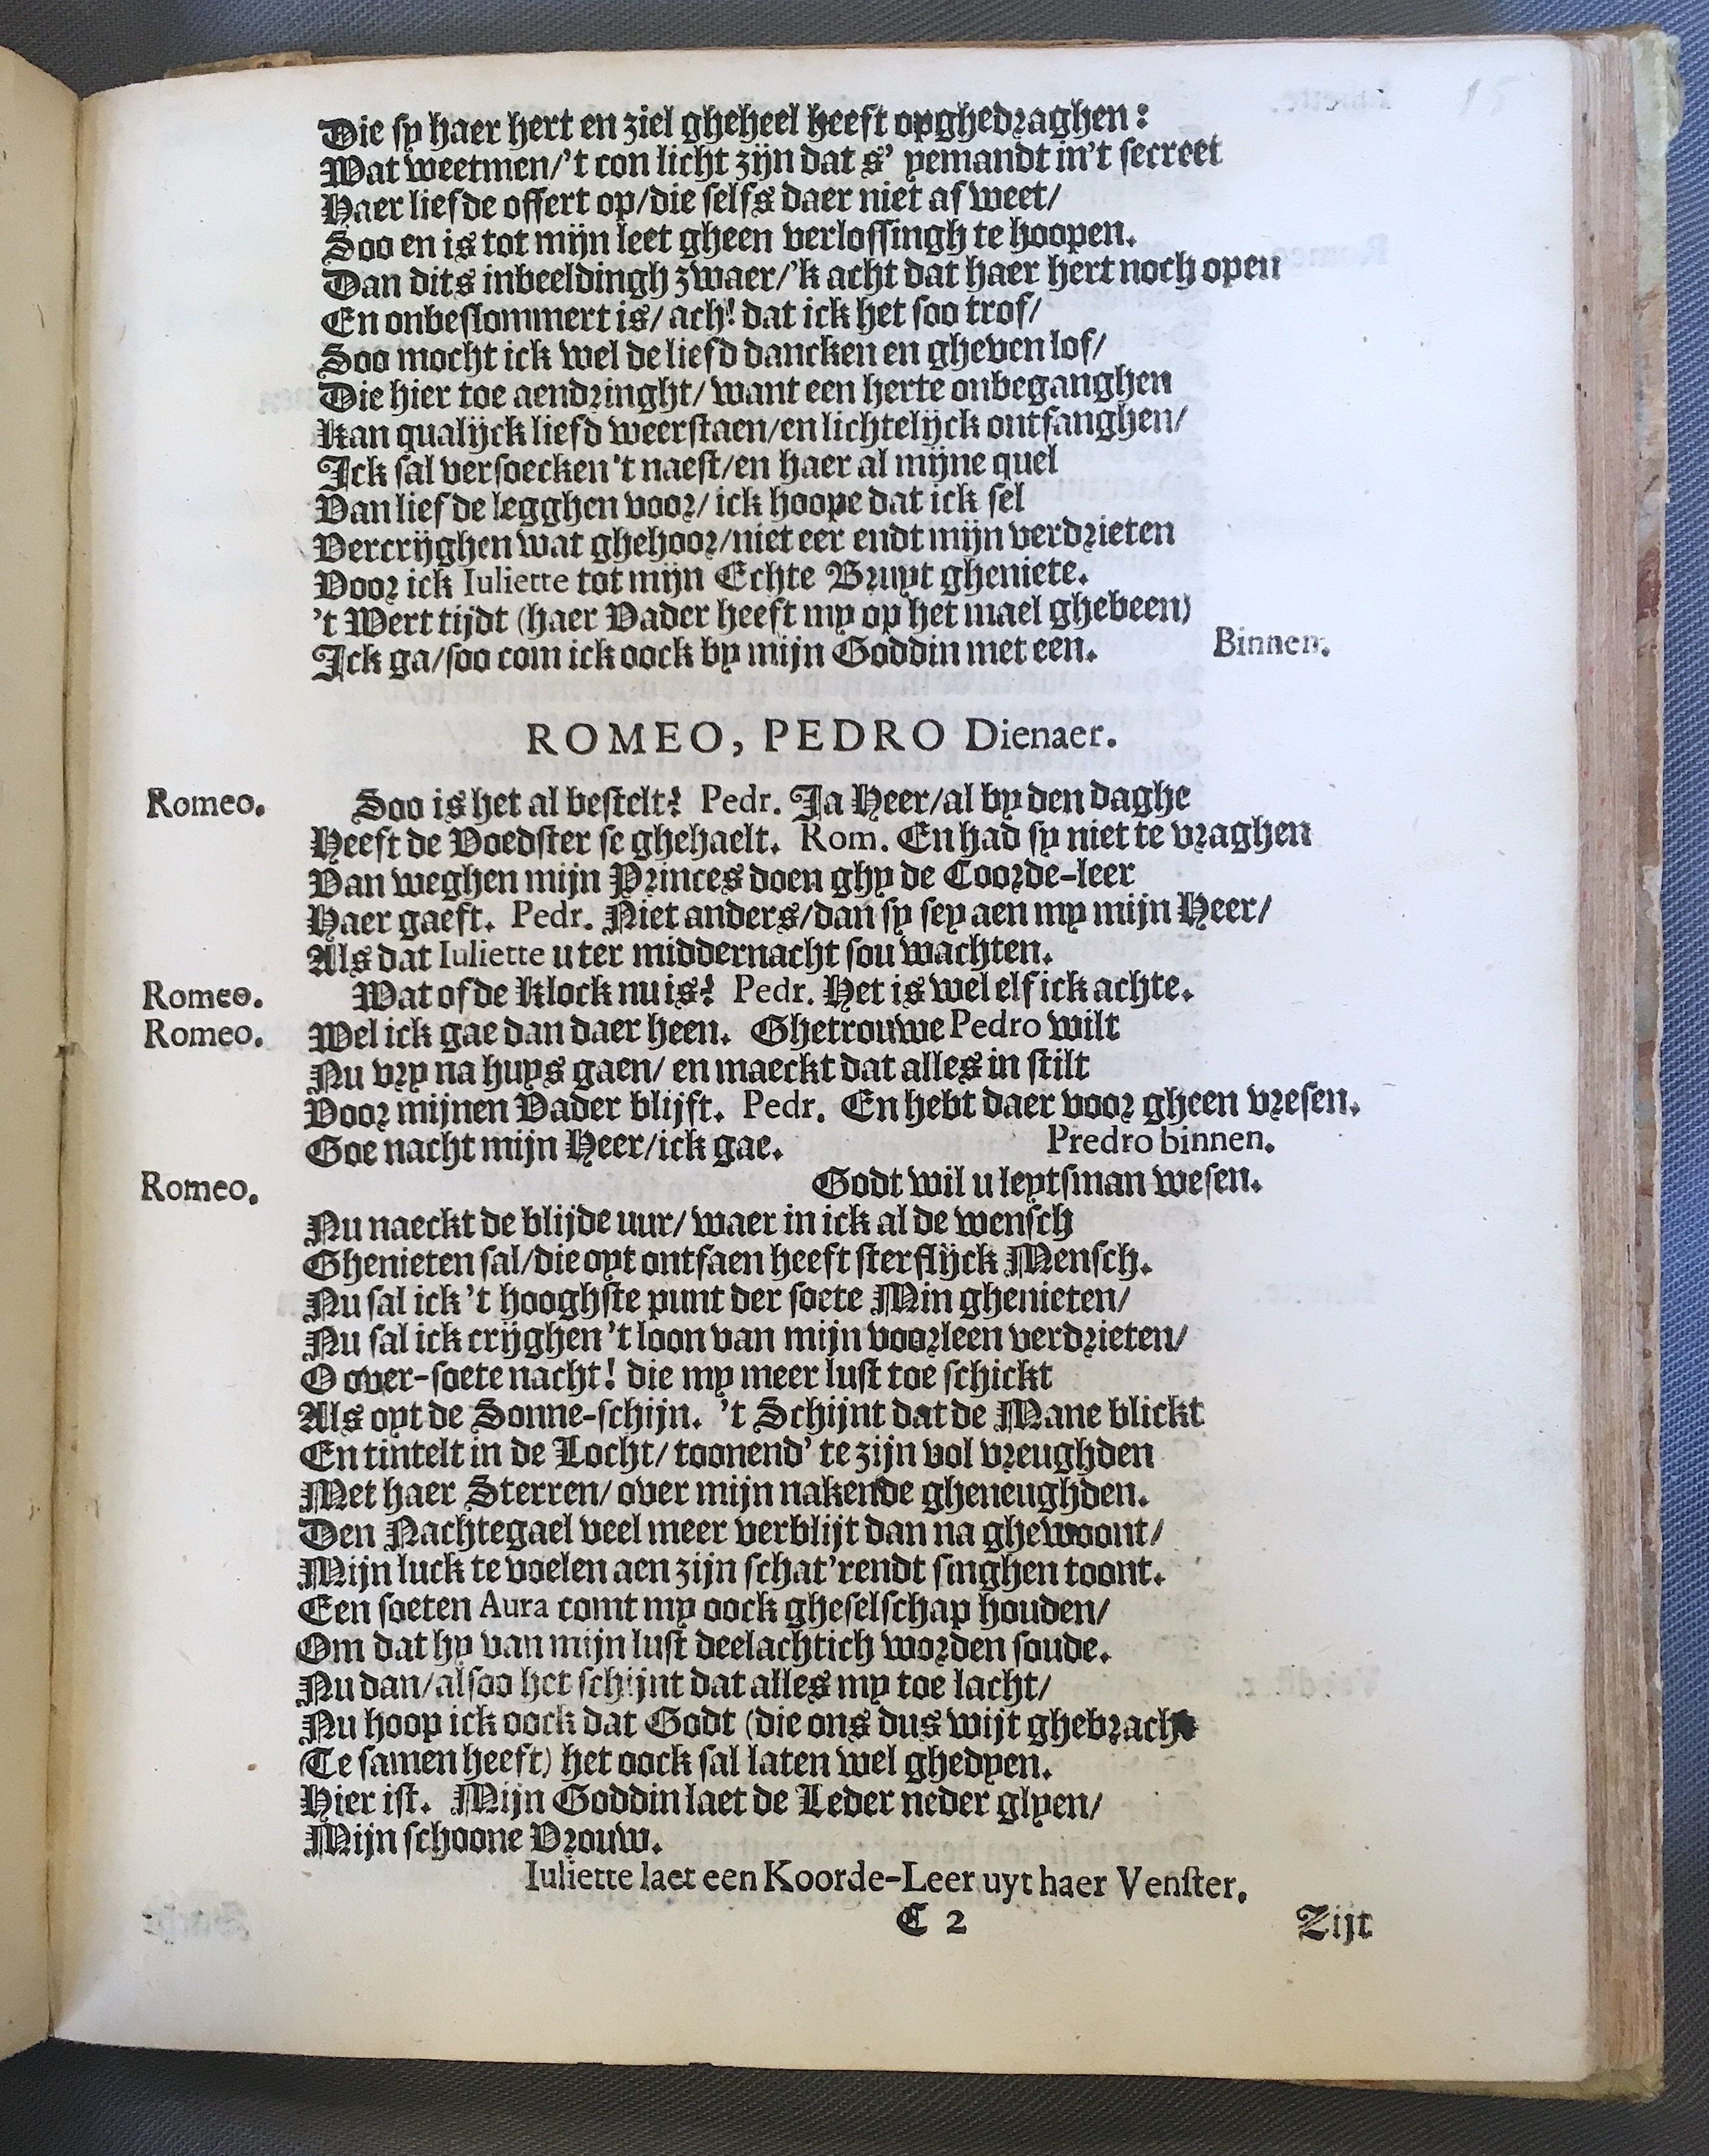 Die sy haer hert en ziel gheheel heeft opghedraghen:
Wat weetmen/'t con licht zijn dat s' yemandt in't secreet
Haer liefde offert op/die selfs daer niet af weet/
Soo en is tot mijn leet gheen verlossingh te hoopen.
Dan dits inbeeldingh zwaer/'k acht dat haer hert noch open
En onbeslommert is/ ach! dat ick het soo trof/
Soo mocht ick wel de liefd dancken en gheven lof/
Die hier toe aendringht/ want een herte onbeganghen
Kan qualijck liefd weerstaen/en lichtelijck ontfanghen/
Ick sal versoecken 't naest/en haer al mijne quel
Van liefde legghen voor/ ick hoope dat ick sel
Vercrijghen wat ghehoor/niet eer endt mijn verdrieten
Voor ick Iuliette tot mijn Echte Bruyt gheniete.
't Wert tijdt (haer Vader heeft my op het mael ghebeen)
Ick ga/soo com ick oock by mijn Goddin met een. Binnen.
ROMEO, PEDRO Dienaer.
Romeo. Soo is het al bestelt? Pedr. Ja Heer/al by den daghe
Heeft de Voedster se ghehaelt. Rom. En had sy niet te vraghen
Van weghen mijn Princes doen ghy de Coorde-leer
Haer gaeft. Pedr. Niet anders/dan sy sey aen my mijn Heer/
Als dat Iuliette u ter middernacht sou wachten.
Romeo. Wat of de klock nu is? Pedr. Het is wel elf ick achte.
Romeo. Wel ick gae dan daer heen. Ghetrouwe Pedro wilt
Nu vry na huys gaen/ en maeckt dat alles in stilt
Voor mijnen Vader blijft. Pedr. En hebt daer voor gheen vresen.
Goe nacht mijn Heer/ick gae. Predro binnen.
Romeo. Godt wil u leytsman wesen.
Nu naeckt de blijde uur/ waer in ick al de wensch
Ghenieten sal/die oyt ontfaen heeft sterflijck Mensch.
Nu sal ick 't hooghste punt der soete Min ghenieten/
Nu sal ick crijghen 't loon van mijn voorleen verdrieten/
O over-soete nacht! die my meer lust toe schickt
Als oyt de Sonne-schijn. 't Schijnt dat de Mane blickt
En tintelt in de Locht/ toonend' te zijn vol vreughden
Met haer Sterren/ over mijn nakende gheneughden.
Den Nachtegael veel meer verblijt dan na ghewoont/
Mijn luck te voelen aen zijn schat'rendt singhen toont.
Een soeten Aura comt my oock gheselschap houden/
Om dat hy van mijn lust deelachtich worden soude.
Nu dan/alsoo het schijnt dat alles my toe lacht/
Nu hoop ick oock dat Godt (die ons dus wijt ghebracht
(Te samen heeft) het oock sal laten wel ghedyen.
Hier ist. Mijn Goddin laet de Leder neder glyen/
Mijn schoone Vrouw.
Iuliette laet een Koorde-Leer uyt haer Venster.
C 2 Zijt